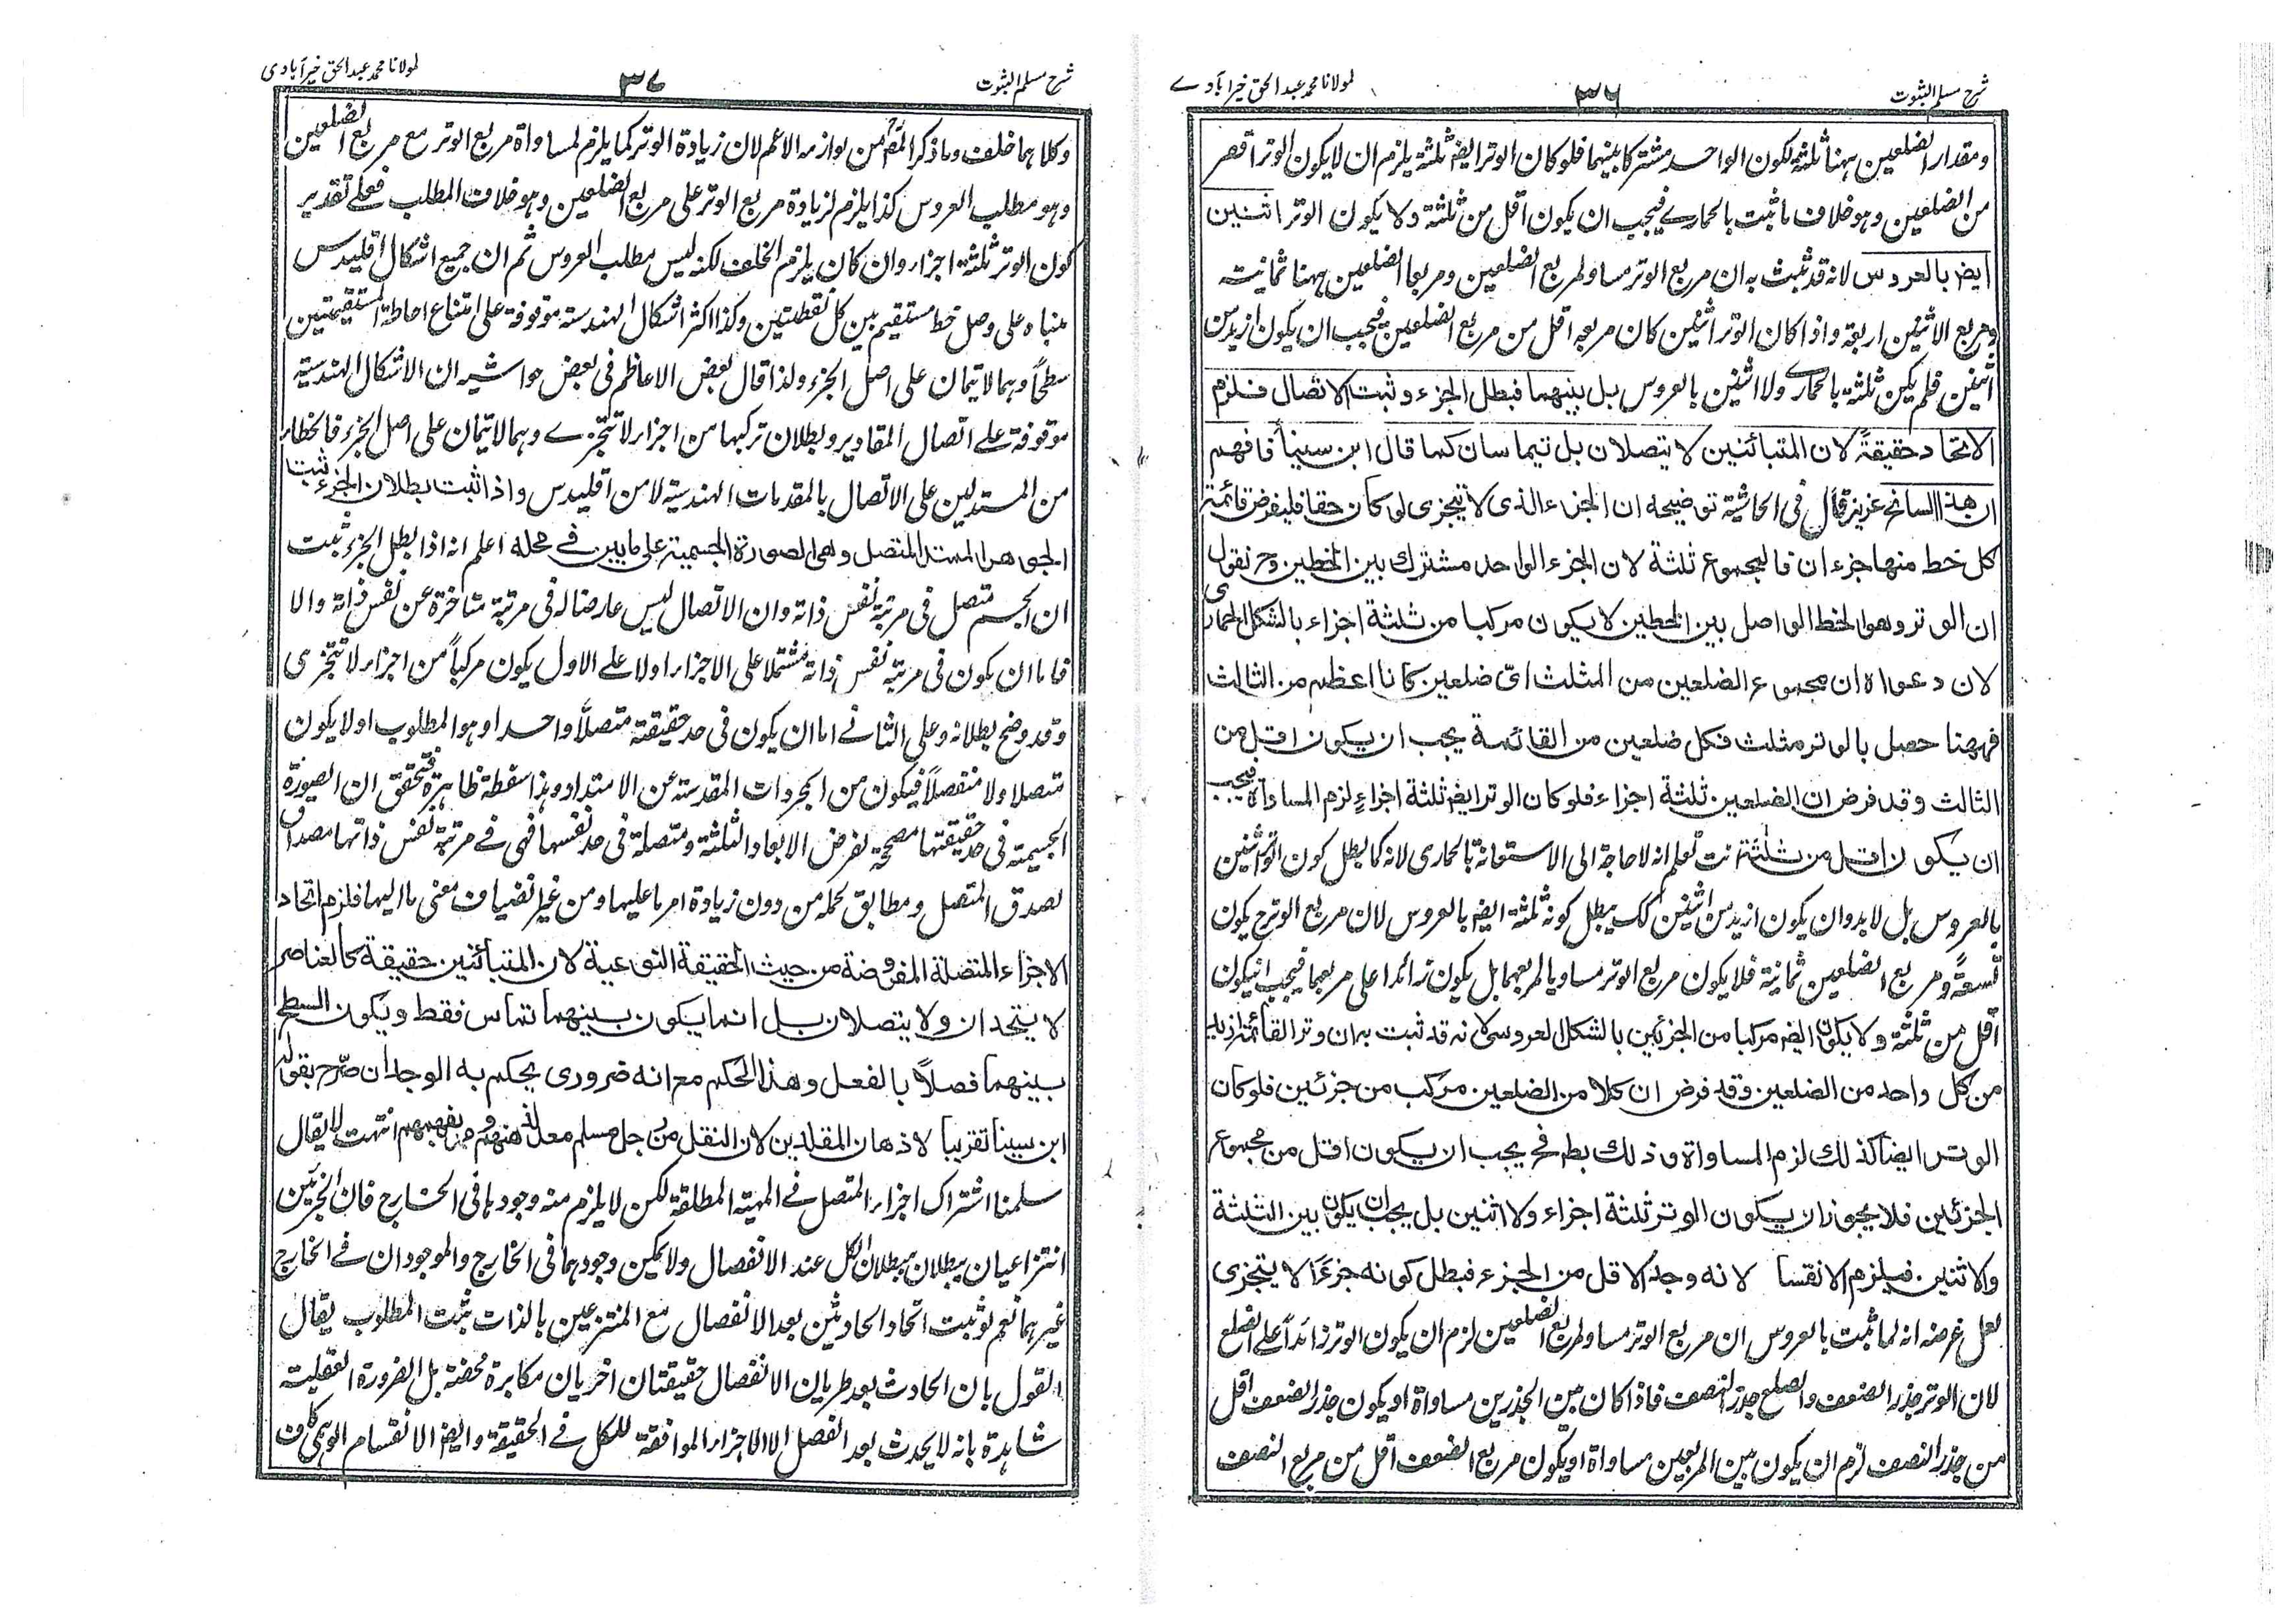 شرح مسلم الثبوت
٣٦
لمولانا محمد عبد الحق خیرآبادے
ومقدار الضلعین ہہنا ثلثۃ لکون الواحد مشترکا بینہما فلو کان الوتر ایضا ثلثۃ یلزم ان لا یکون الوتر اقصر
من الضلعین وہو خلاف ما ثبت بالحماری فیجب ان یکون اقل من ثلثۃ ولا یکون الوتر اثنین
ایضا بالعروس لانہ قد ثبت بہ ان مربع الوتر مساو لمربع الضلعین ومربعا الضلعین ہہنا ثمانیۃ
ومربع الاثنین اربعۃ واذا کان الوتر اثنین کان مربعہ اقل من مربع الضلعین فیجب ان یکون ازید من
اثنین فلم یکن ثلثۃ بالحماری ولا اثنین بالعروس بل بینہما فبطل الجزء وثبت الاتصال فلزم
الاتحاد حقیقۃً لان المتبائنین لا یتصلان بل یتماسان کما قال ابن سینا فافہم
ان ہذا السانح عزیز قال فی الحاشیۃ توضیحہ ان الجزء الذی لا یتجزی لو کان حقا فلیفرض قائمۃ
کل خط منہا جزءان فالمجموع ثلثۃ لان الجزء الواحد مشترک بین الخطین وح نقول
ان الوتر وہو الخط الواصل بین الخطین لا یکون مرکبا من ثلثۃ اجزاء بالشکل الحماری
لان دعواہ ان مجموع الضلعین من المثلث ای ضلعین کانا اعظم من الثالث
فہہنا حصل بالوتر مثلث فکل ضلعین من القائمۃ یجب ان یکون اقل من
الثالث وقد فرض ان الضلعین ثلثۃ اجزاء فلو کان الوتر ایضا ثلثۃ اجزاء لزم المساواۃ فیجب
ان یکون اقل من ثلثۃ انت تعلم انہ لا حاجۃ الی الاستعانۃ بالحماری لانہ کما یبطل کون الوتر اثنین
بالعروس بل لا بد وان یکون ازید من اثنین کک یبطل کونہ ثلثۃ ایضا بالعروس لان مربع الوتر ح یکون
تسعۃً ومربع الضلعین ثمانیۃ فلا یکون مربع الوتر مساویا لمربعہما بل یکون زائدا علی مربعہما فیجب ان یکون
اقل من ثلثۃ ولا یکون ایضا مرکبا من الجزئین بالشکل العروسی لانہ قد ثبت بہ ان وتر القائمۃ ازید
من کل واحد من الضلعین وقد فرض ان کلا من الضلعین مرکب من جزئین فلو کان
الوتر ایضا کذلک لزم المساواۃ وذلک بط فح یجب ان یکون اقل من مجموع
الجزئین فلا یجوز ان یکون الوتر ثلثۃ اجزاء ولا اثنین بل یجب ان یکون بین الثلثۃ
والاثنین فیلزم الانقسا لانہ وجد الاقل من الجزء فبطل کونہ جزءًا لا یتجزی
لعل غرضہ انہ لما ثبت بالعروس ان مربع الوتر مساو لمربع الضلعین لزم ان یکون الوتر زائداً علی الضلع
لان الوتر جذر الضعف والضلع جذر النصف فاذا کان بین الجذرین مساواۃ او یکون جذر الضعف اقل
من جذر النصف لزم ان یکون بین المربعین مساواۃ او یکون مربع الضعف اقل من مربع النصف
شرح مسلم الثبوت
٣٧
لمولانا محمد عبد الحق خیرآبادی
وکلاہما خلف وما ذکر المص من لوازمہ الاعم لان زیادۃ الوتر کما یلزم لمساواۃ مربع الوتر مع مربع الضلعین
وہو مطلب العروس کذا یلزم لزیادۃ مربع الوتر علی مربع الضلعین وہو خلاف المطلب فعلی تقدیر
کون الوتر ثلثۃ اجزاء وان کان یلزم الخلف لکنہ لیس مطلب العروس ثم ان جمیع اشکال اقلیدس
مبناہ علی وصل خط مستقیم بین کل نقطتین وکذا اکثر اشکال الہندسۃ موقوفۃ علی امتناع احاطۃ المستقیمتین
سطحاً وہما لا یتمان علی اصل الجزء ولذا قال بعض الاعاظم فی بعض حواشیہ ان الاشکال الہندسیۃ
موقوفۃ علی اتصال المقادیر وبطلان ترکبہا من اجزاء لا تتجزے وہما لا یتمان علی اصل الجزء فالخطاء
من المستدلین علی الاتصال بالمقدمات الہندسیۃ لا من اقلیدس واذا ثبت بطلان الجزء ثبت
الجوہر الممتد المتصل وہی الصورۃ الجسمیۃ علی ما بین فی محلہ اعلم انہ اذا بطل الجزء ثبت
ان الجسم متصل فی مرتبۃ نفس ذاتہ وان الاتصال لیس عارضا لہ فی مرتبۃ متاخرۃ عن نفس ذاتہ والا
فاما ان یکون فی مرتبۃ نفس ذاتہ مشتملا علی الاجزاء اولا علی الاول یکون مرکباً من اجزاء لا تتجزی
وقد وضح بطلانہ وعلی الثانے اما ان یکون فی حد حقیقتہ متصلاً واحدا وہو المطلوب او لا یکون
متصلا ولا منفصلاً فیکون من المجردات المقدسۃ عن الامتداد وہذا سفسطۃ ظاہرۃ فتحقق ان الصورۃ
الجسمیۃ فی حد حقیقتہا مصححۃ لفرض الابعاد الثلثۃ ومتصلۃ فی حد نفسہا فہی فے مرتبۃ نفس ذاتہا مصداق
لصدق المتصل ومطابق لحملہ من دون زیادۃ امر ما علیہا ومن غیر انضیاف معنی ما الیہا فلزم اتحاد
الاجزاء المتصلۃ المفروضۃ من حیث الحقیقۃ النوعیۃ لان المتبائنین حقیقۃ کالعناصر
لا یتحدان ولا یتصلان بل انما یکون بینہما تماس فقط ویکون السطح
بینہما فصلاً بالفعل وہذا الحکم مع انہ ضروری یحکم بہ الوجدان صرح بقول
ابن سینا تقریبا لاذہان المقلدین لان النقل من رجل مسلم معلل انتہت لا یقال
سلمنا اشتراک اجزاء المتصل فے المہیۃ المطلقۃ لکن لا یلزم منہ وجودہا فی الخارج فان الجزئین
انتزاعیان یبطلان ببطلان الکل عند الانفصال ولا یمکن وجودہما فی الخارج والموجودان فے الخارج
غیرہما نعم لو ثبت اتحاد الحادثین بعد الانفصال مع المنتزعین بالذات ثبت المطلوب یقال
القول بان الحادث بعد طریان الانفصال حقیقتان اخریان مکابرۃ محضۃ بل الضرورۃ العقلیۃ
شاہدۃ بانہ لا یحدث بعد الفصل الا الاجزاء الموافقۃ للکل فے الحقیقۃ وایضا الانقسام الوہمی کاف